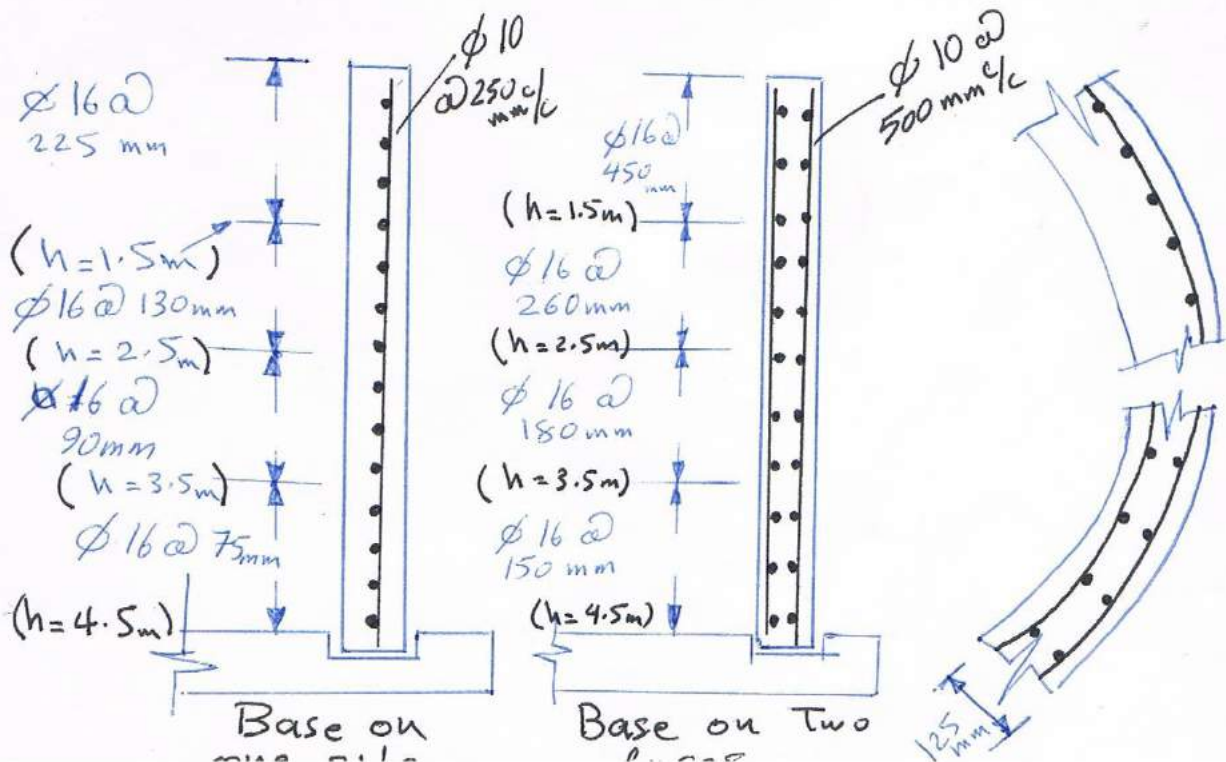 ϕ 16 @
225 mm
(h=1.5m)
ϕ16 @ 130mm
(h=2.5m)
ϕ 16 @
90mm
(h=3.5m)
ϕ 16 @ 75mm
(h=4.5m)
ϕ 10
@ 250 c/c
mm
Base on
ϕ16@
450
mm
(h=1.5m)
ϕ 16 @
260mm
(h=2.5m)
ϕ 16 @
180mm
(h=3.5m)
ϕ 16 @
150 mm
(h=4.5m)
ϕ 10 @
500 mm c/c
Base on Two
125
mm